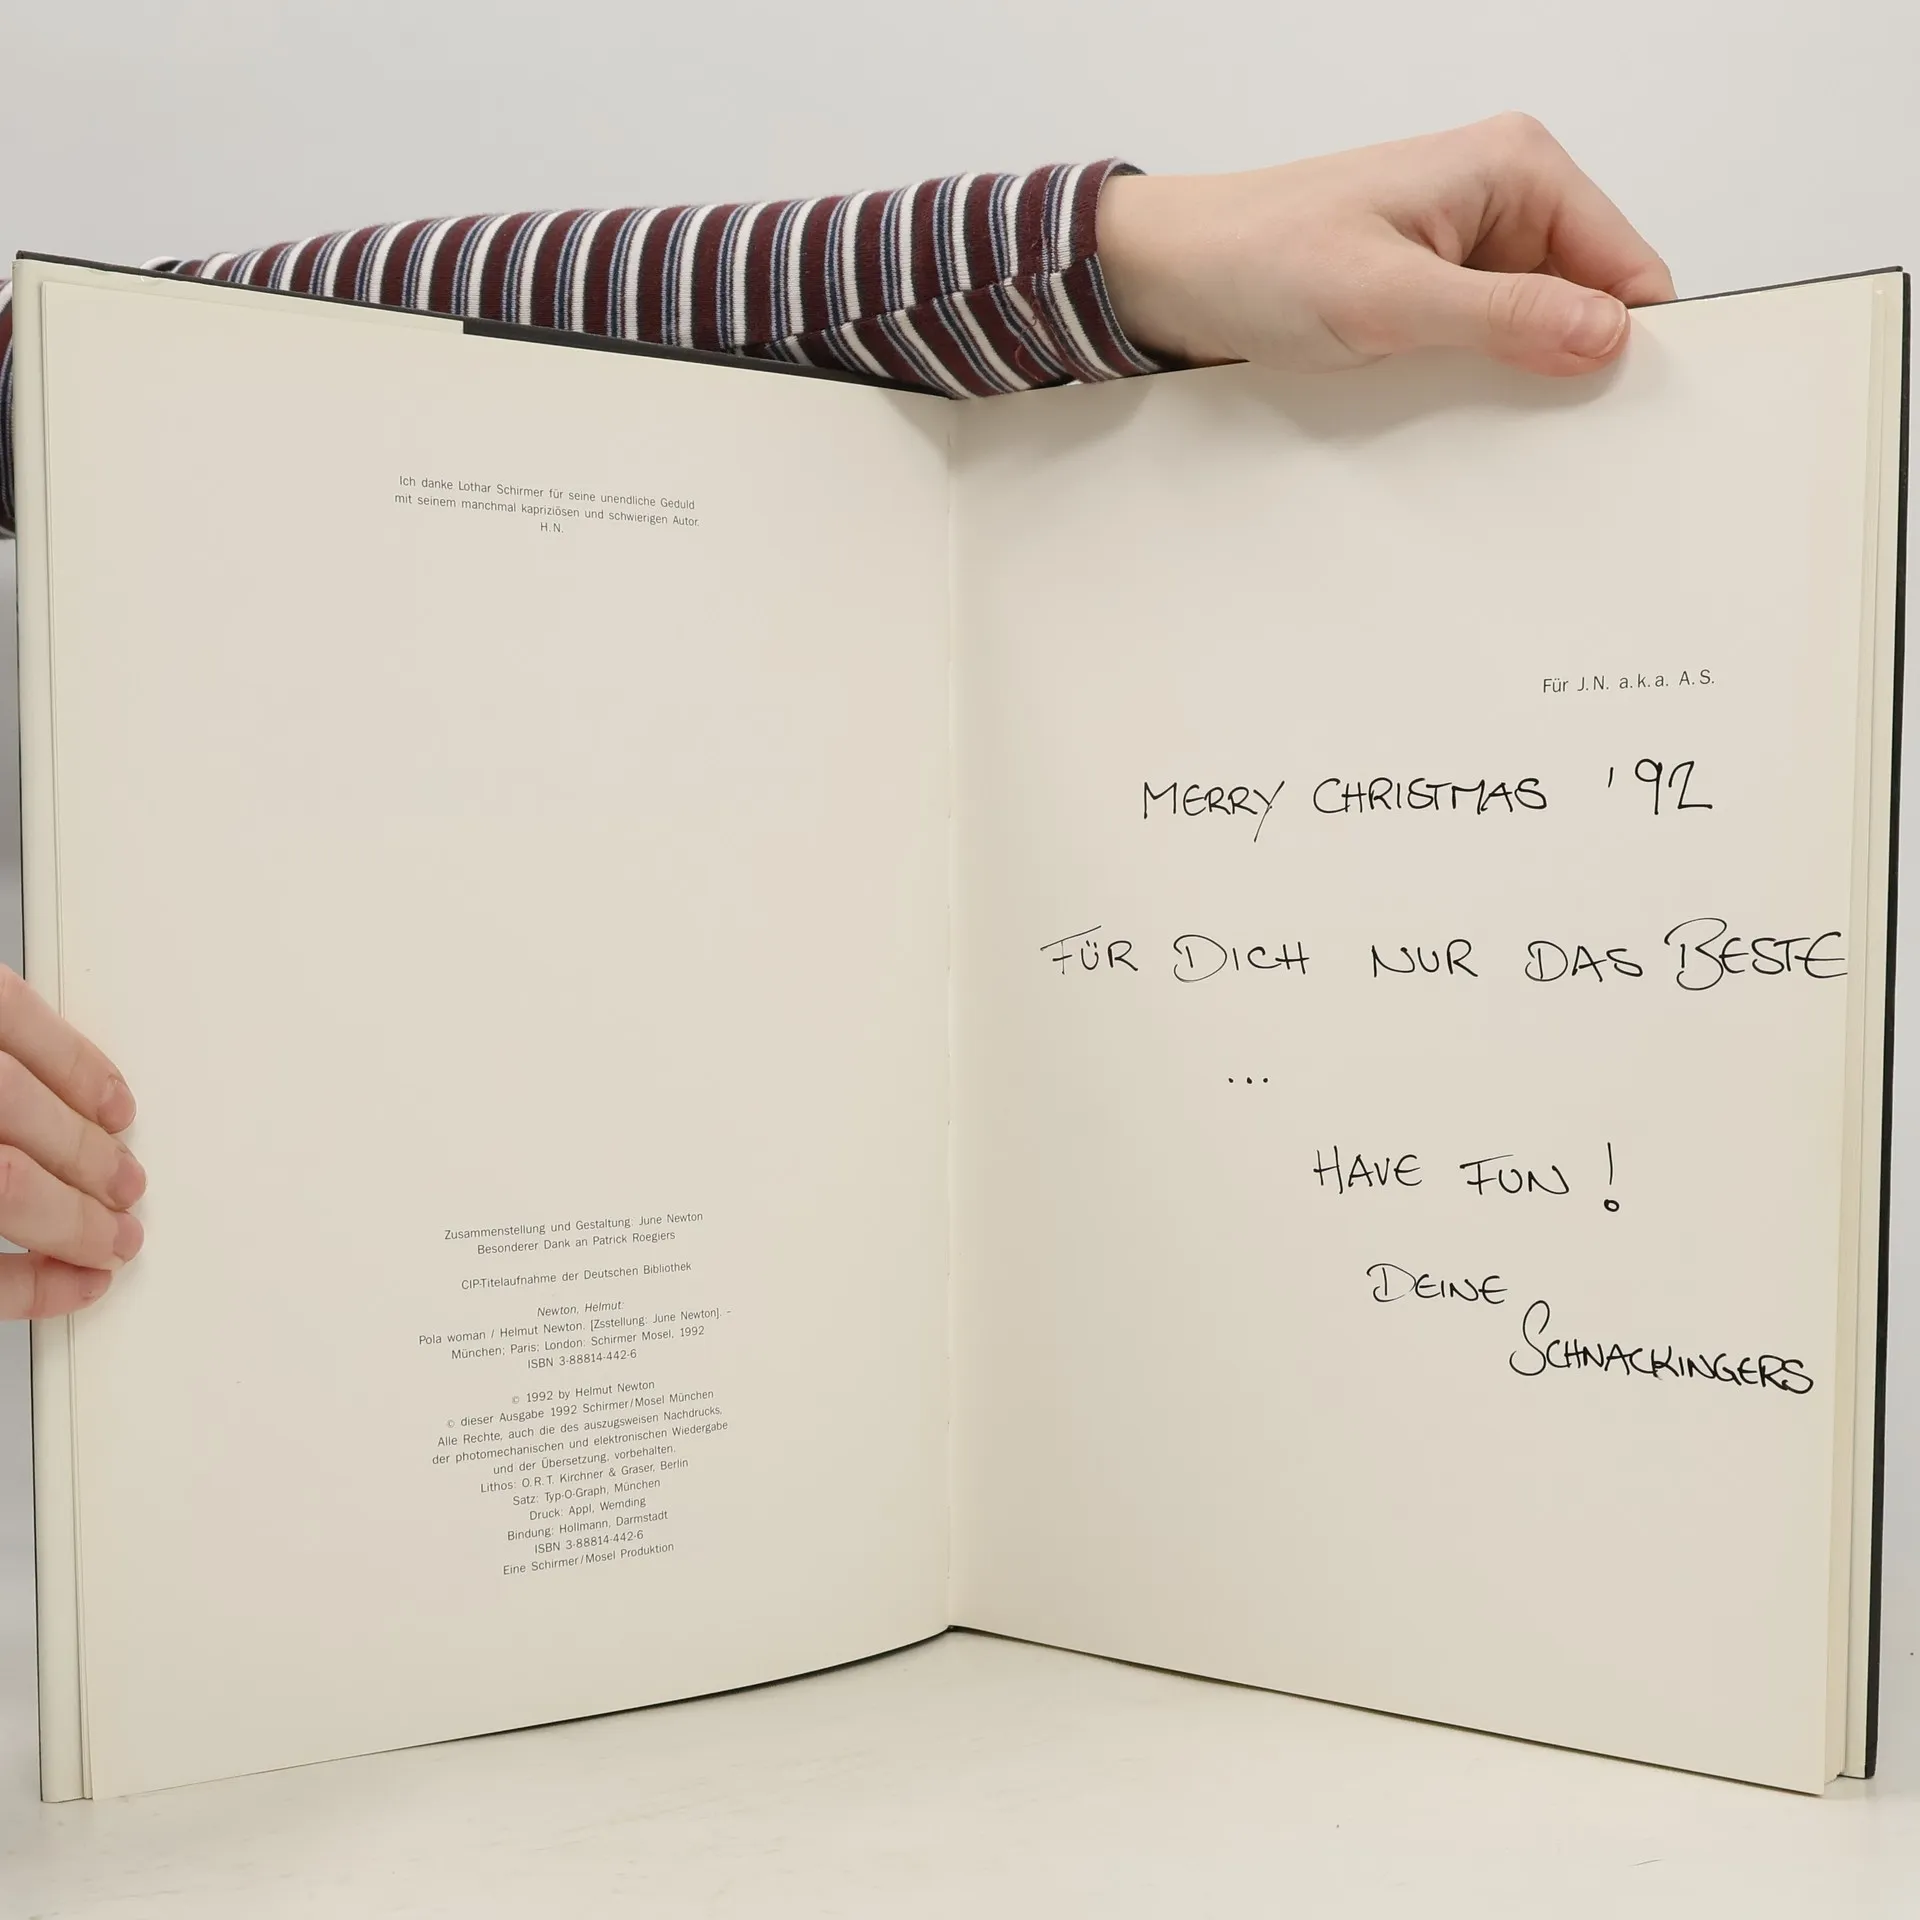 Ich danke Lothar Schirmer für seine unendliche Geduld
mit seinem manchmal kapriziösen und schwierigen Autor.
H. N.
Zusammenstellung und Gestaltung: June Newton
Besonderer Dank an Patrick Roegiers
CIP-Titelaufnahme der Deutschen Bibliothek
Newton, Helmut:
Pola woman / Helmut Newton. [Zsstellung: June Newton]. –
München; Paris; London: Schirmer Mosel, 1992
ISBN 3-88814-442-6
© 1992 by Helmut Newton
© dieser Ausgabe 1992 Schirmer/Mosel München
Alle Rechte, auch die des auszugsweisen Nachdrucks,
der photomechanischen und elektronischen Wiedergabe
und der Übersetzung, vorbehalten.
Lithos: O.R.T. Kirchner & Graser, Berlin
Satz: Typ-O-Graph, München
Druck: Appl, Wemding
Bindung: Hollmann, Darmstadt
ISBN 3-88814-442-6
Eine Schirmer/Mosel Produktion
Für J. N. a. k. a. A. S.
MERRY CHRISTMAS '92
FÜR DICH NUR DAS BESTE
...
HAVE FUN !
DEINE
SCHNACKINGERS